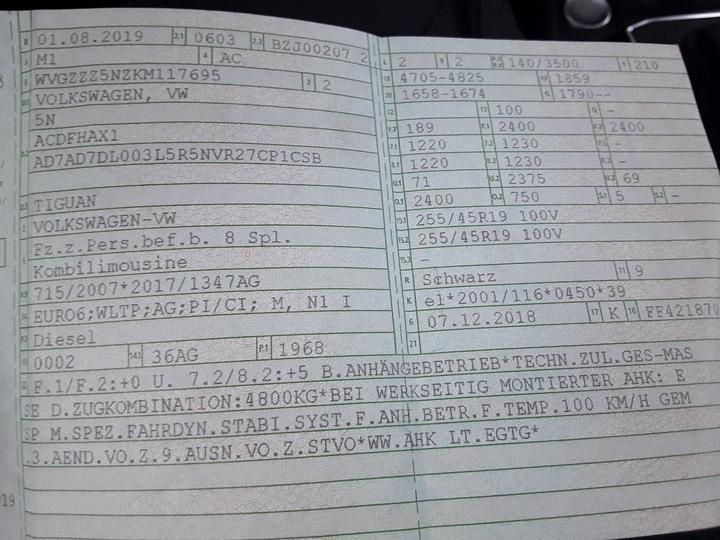 B 01.08.2019 2.1 0603 2.2 BZJ00207 2
J M1 4 AC
E WVGZZZ5NZKM117695 3 2
D.1 VOLKSWAGEN, VW
5N
ACDFHAX1
D.2 AD7AD7DL003L5R5NVR27CP1CSB
D.3 TIGUAN
2 VOLKSWAGEN-VW
Fz.z.Pers.bef.b. 8 Spl.
5 Kombilimousine
V.9 715/2007*2017/1347AG
14 EURO6;WLTP;AG;PI/CI; M, N1 I
P.3 Diesel
10 0002 14.1 36AG P.1 1968
L 2 9 2 140/3500 T 210
18 4705-4825 19 1859
20 1658-1674 G 1790--
12 13 100 Q -
V.7 189 F.1 2400 F.2 2400
7.1 1220 7.2 1230 7.3 -
8.1 1220 8.2 1230 8.3 -
U.1 71 U.2 2375 U.3 69
O.1 2400 O.2 750 S.1 5 S.2 -
15.1 255/45R19 100V
15.2 255/45R19 100V
15.3 -
R Schwarz 11 9
K e1*2001/116*0450*39
6 07.12.2018 17 K 16 FF421870
21
22 F.1/F.2:+0 U. 7.2/8.2:+5 B.ANHÄNGEBETRIEB*TECHN.ZUL.GES-MAS
SE D.ZUGKOMBINATION:4800KG*BEI WERKSEITIG MONTIERTER AHK: E
SP M.SPEZ.FAHRDYN.STABI.SYST.F.ANH.BETR.F.TEMP.100 KM/H GEM
.3.AEND.VO.Z.9.AUSN.VO.Z.STVO*WW.AHK LT.EGTG*